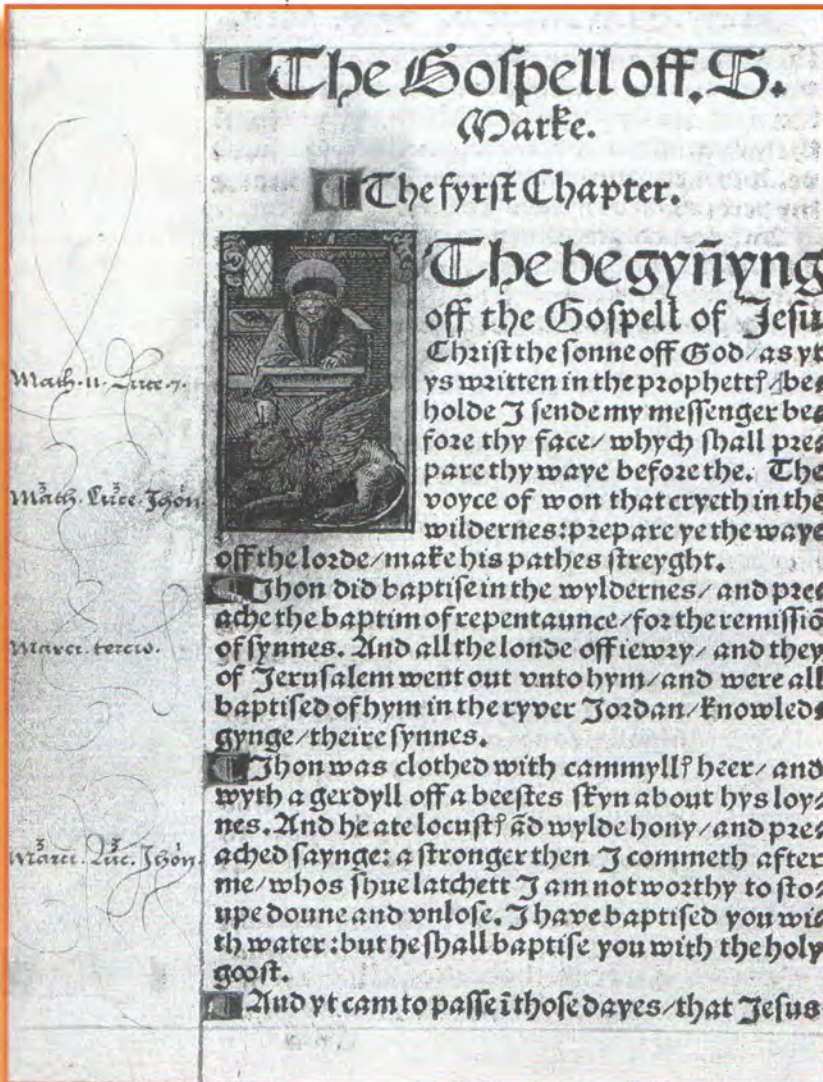 ¶The Goſpell off.S.
Marke.
¶The fyrſt Chapter.
The begyñyng
off the Goſpell of Jeſu
Chriſt the ſonne off God/as yt
ys written in the prophettꝭ/be⸗
holde I ſende my meſſenger be⸗
fore thy face/whych ſhall pre⸗
pare thy waye before the. The
voyce of won that cryeth in the
wildernes:prepare ye the waye
off the lorde/make his pathes ſtreyght.
¶Jhon did baptiſe in the wyldernes/and pre⸗
ache the baptim of repentaunce/for the remiſſiõ
of ſynnes. And all the londe off iewry/and they
of Jeruſalem went out vnto hym/and were all
baptiſed of hym in the ryver Jordan/knowled⸗
gynge/theire ſynnes.
¶Jhon was clothed with cammyllꝭ heer/and
wyth a gerdyll off a beeſtes ſkyn about hys loy⸗
nes. And he ate locuſtꝭ ãd wylde hony/and pre⸗
ached ſaynge: a ſtronger then I commeth after
me/whos ſhue latchett I am not worthy to ſto⸗
upe doune and vnloſe. I have baptiſed you wi⸗
th water:but he ſhall baptiſe you with the holy
gooſt.
¶And yt cam to paſſe ĩ thoſe dayes/that Jeſus
Math.11. Luce.7.
3 3 1
Math. Luce. Jhon
Marci. tercio.
3 3 1
Marci. Luc. Jhon.